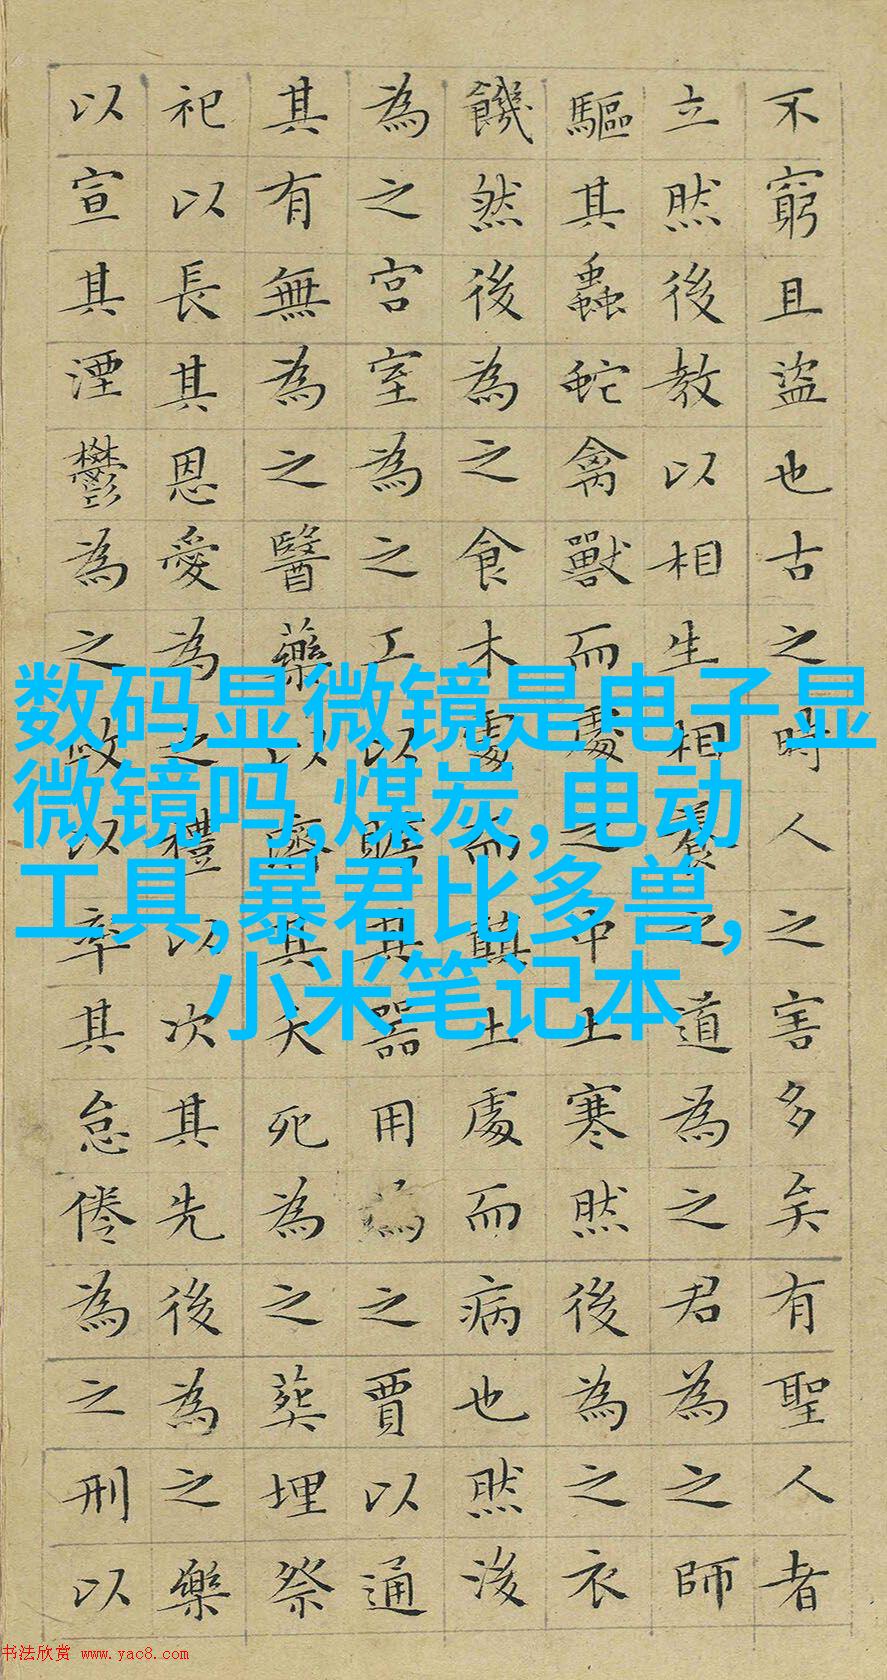 不窮且盜也古之時人之害多矣有聖人者
立然後教以相生相養之道為之君為之師
驅其蟲蛇禽獸而處之中土寒然後為之衣
饑然後為之食木處而顛土處而病也然後
為之宮室為之工以贍其器用為之賈以通
其有無為之醫藥以濟其夭死為之葬埋祭
祀以長其恩愛為之禮以次其先後為之樂
以宣其湮鬱為之政以率其怠倦為之刑以
数码显微镜是电子显
微镜吗,煤炭,电动
工具,暴君比多兽,
小米笔记本
书法欣赏 www.yac8.com